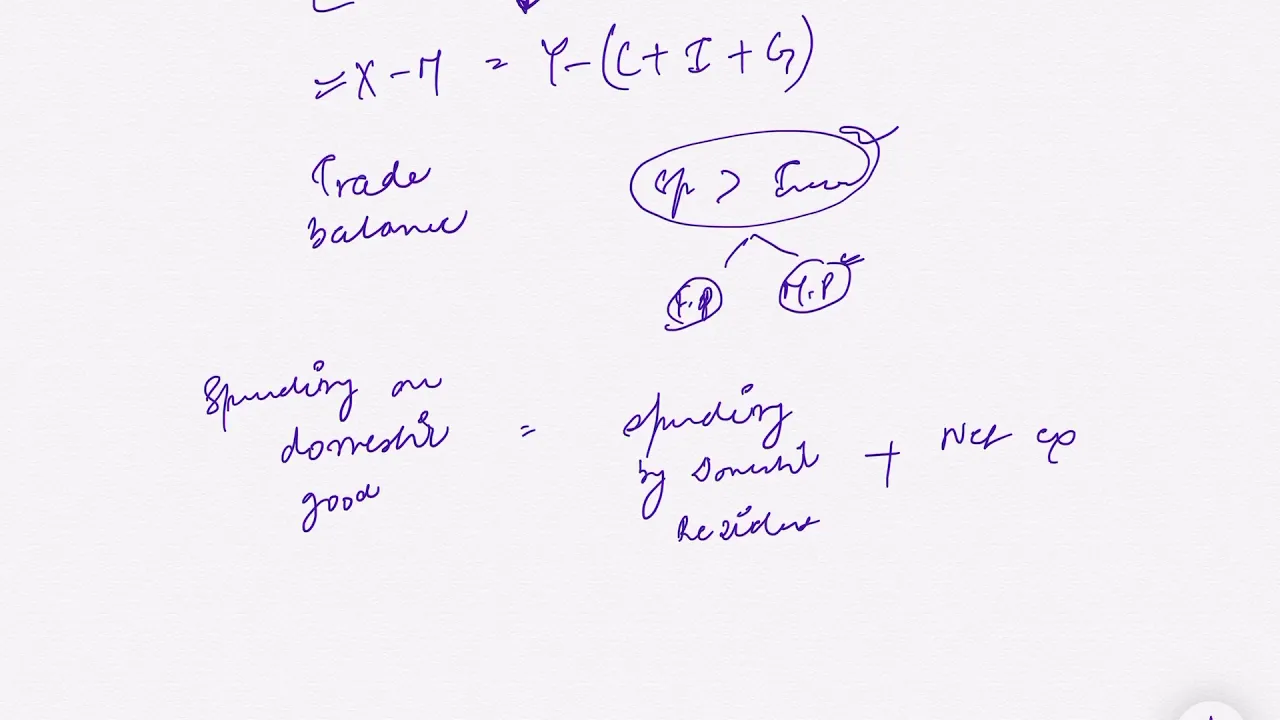 = X - M = Y - (C + I + G)
Trade
balance
Exp > Income
F.P M.P
Spending on
domestic
good
=
Spending
by Domestic
Resident
+ Net exp